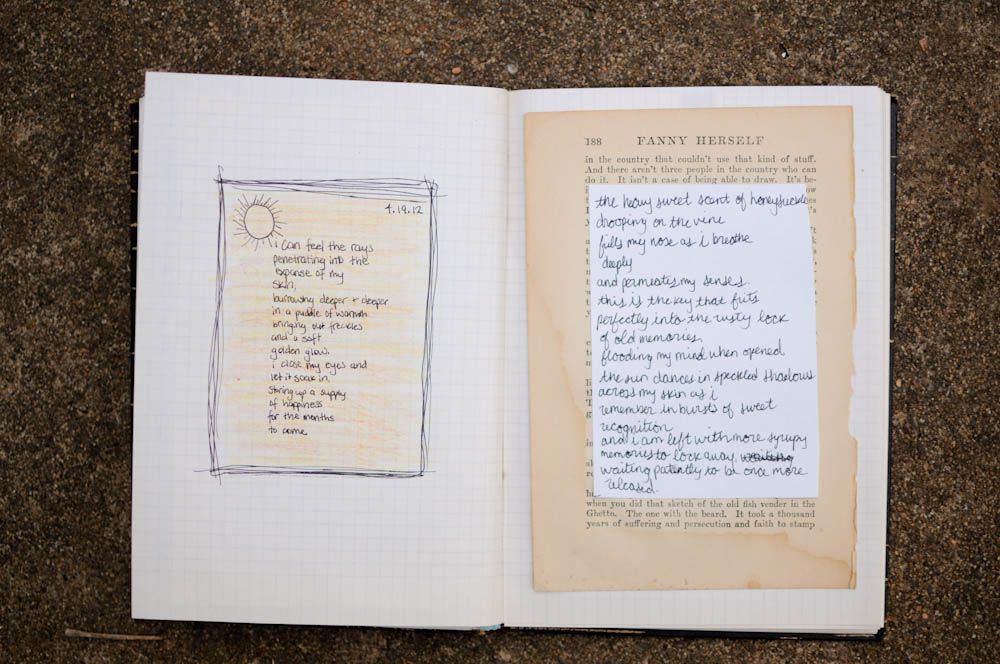 4.19.12
i can feel the rays
penetrating into the
expanse of my
skin,
burrowing deeper + deeper
in a puddle of warmth
bringing out freckles
and a soft
golden glow.
i close my eyes and
let it soak in.
storing up a supply
of happiness
for the months
to come
188 FANNY HERSELF
in the country that couldn't use that kind of stuff.
And there aren't three people in the country who can
do it. It isn't a case of being able to draw. It's be-
the heavy sweet scent of honeysuckle
drooping on the vine
fills my nose as i breathe
deeply
and permeates my senses.
this is the key that fits
perfectly into the rusty lock
of old memories,
flooding my mind when opened
the sun dances in speckled shadows
across my skin as i
remember in bursts of sweet
recognition
and i am left with more syrupy
memories to lock away,
waiting patiently to be once more
released.
when you did that sketch of the old fish vender in the
Ghetto. The one with the beard. It took a thousand
years of suffering and persecution and faith to stamp